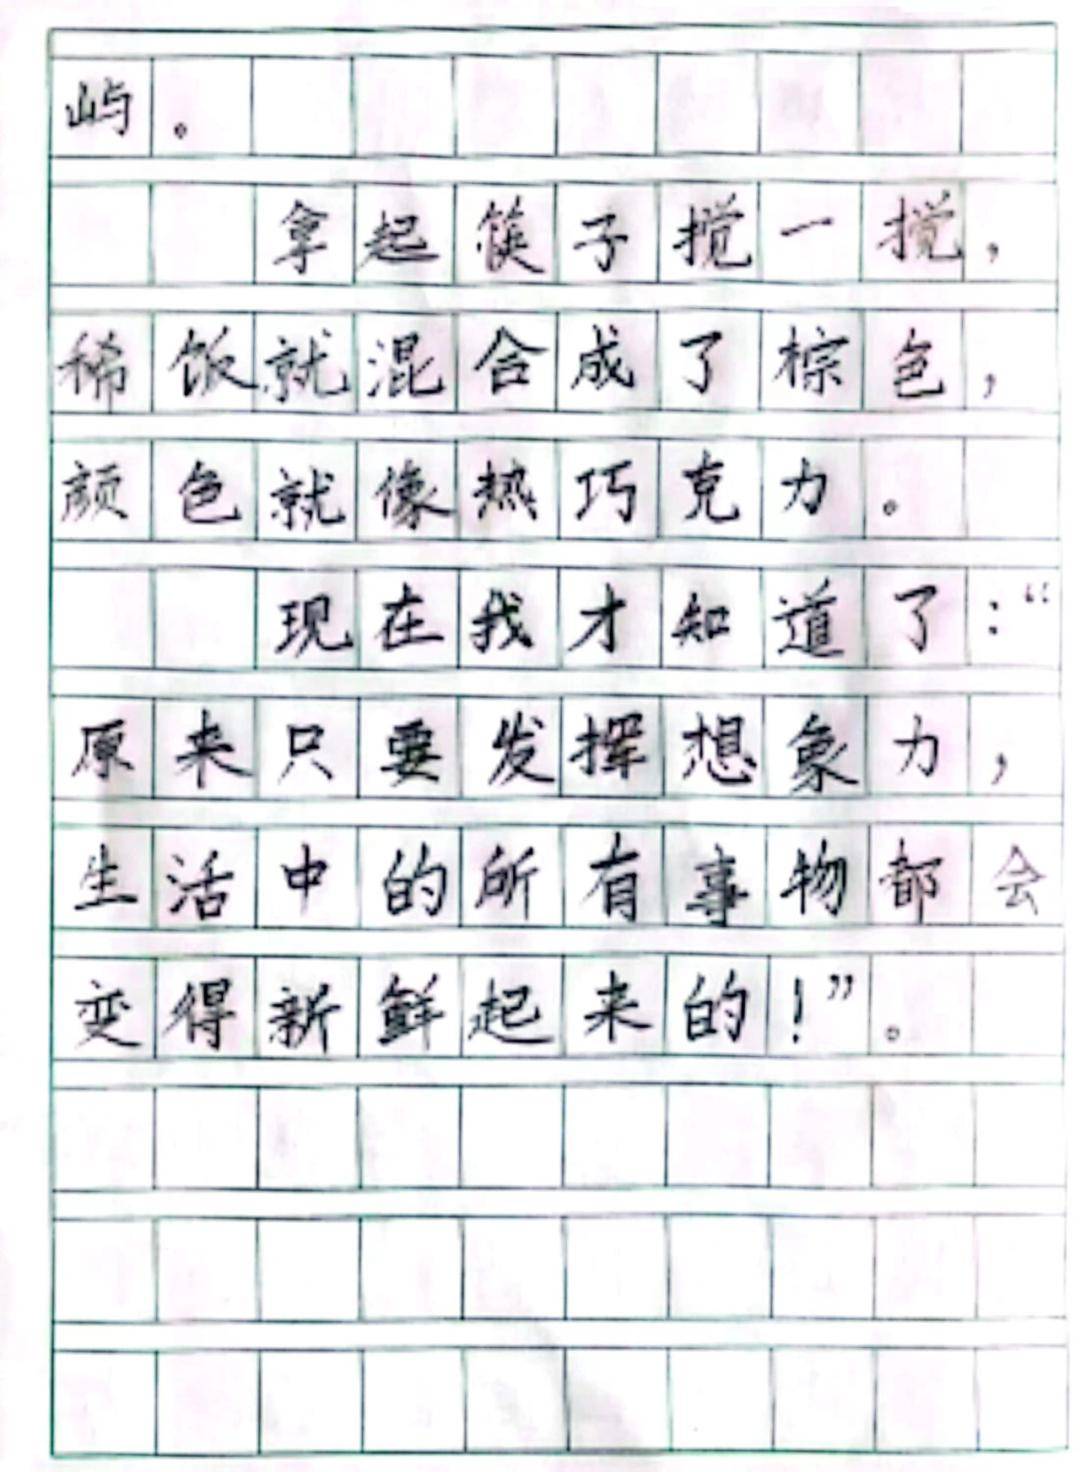 屿。
拿起筷子搅一搅，
稀饭就混合成了棕色，
颜色就像热巧克力。
现在我才知道了：“
原来只要发挥想象力，
生活中的所有事物都会
变得新鲜起来的！”。